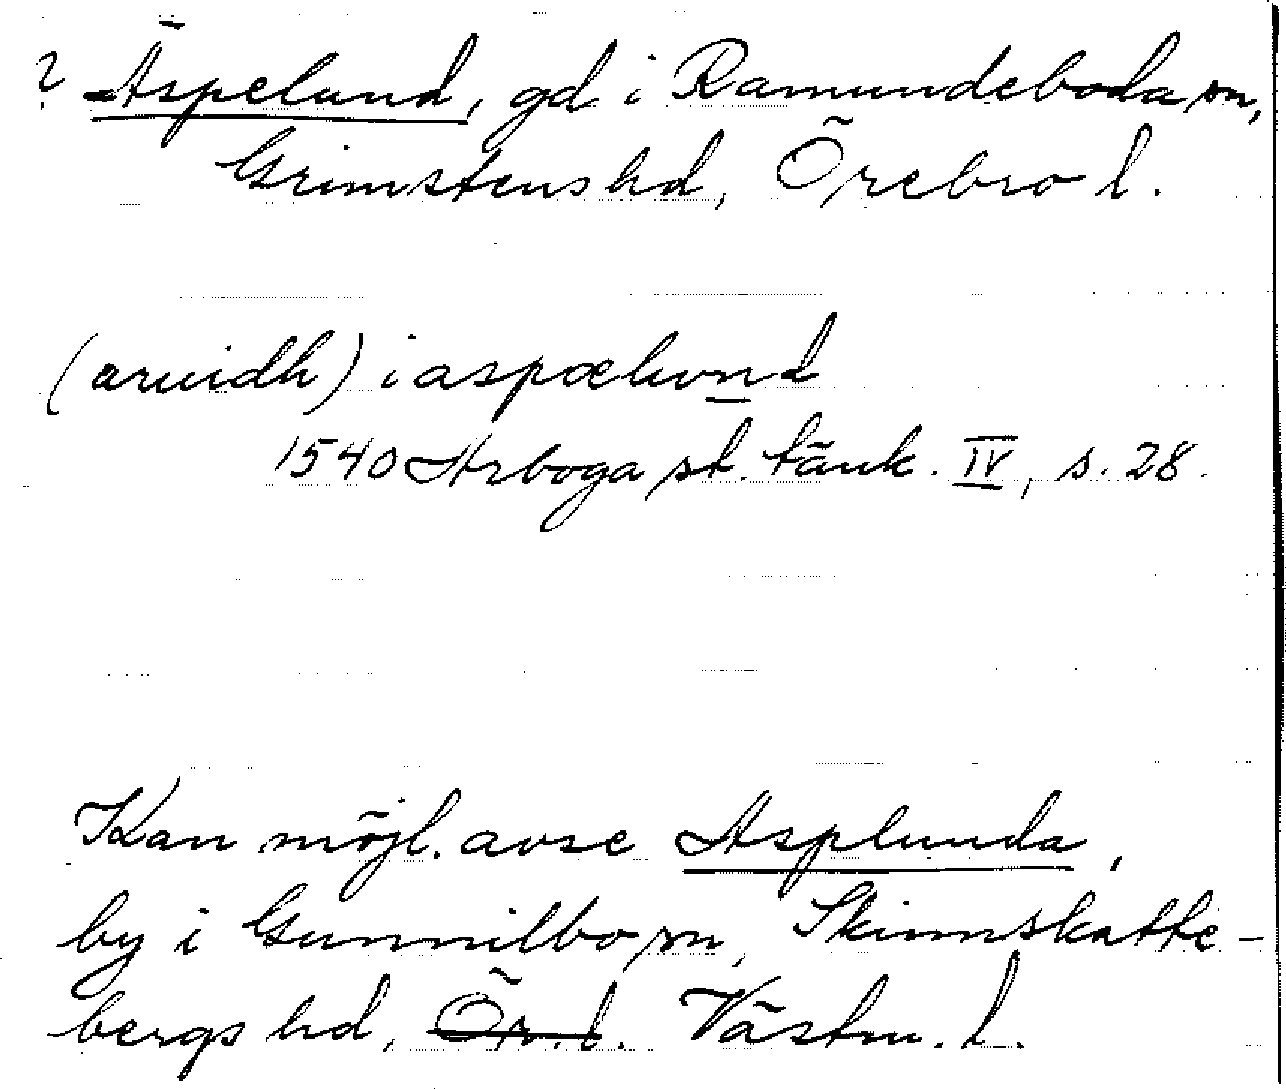 ? Äspelund, gd i Ramundeboda sn,
Grimstens hd, Örebro l.
(aruidh) i aspælund
1540 Arboga st. tänk. IV, s. 28.
Kan möjl. avse Asplunda,
by i Gunnilbo sn, Skinnskatte-
bergs hd, Ör. l. Västm. l.